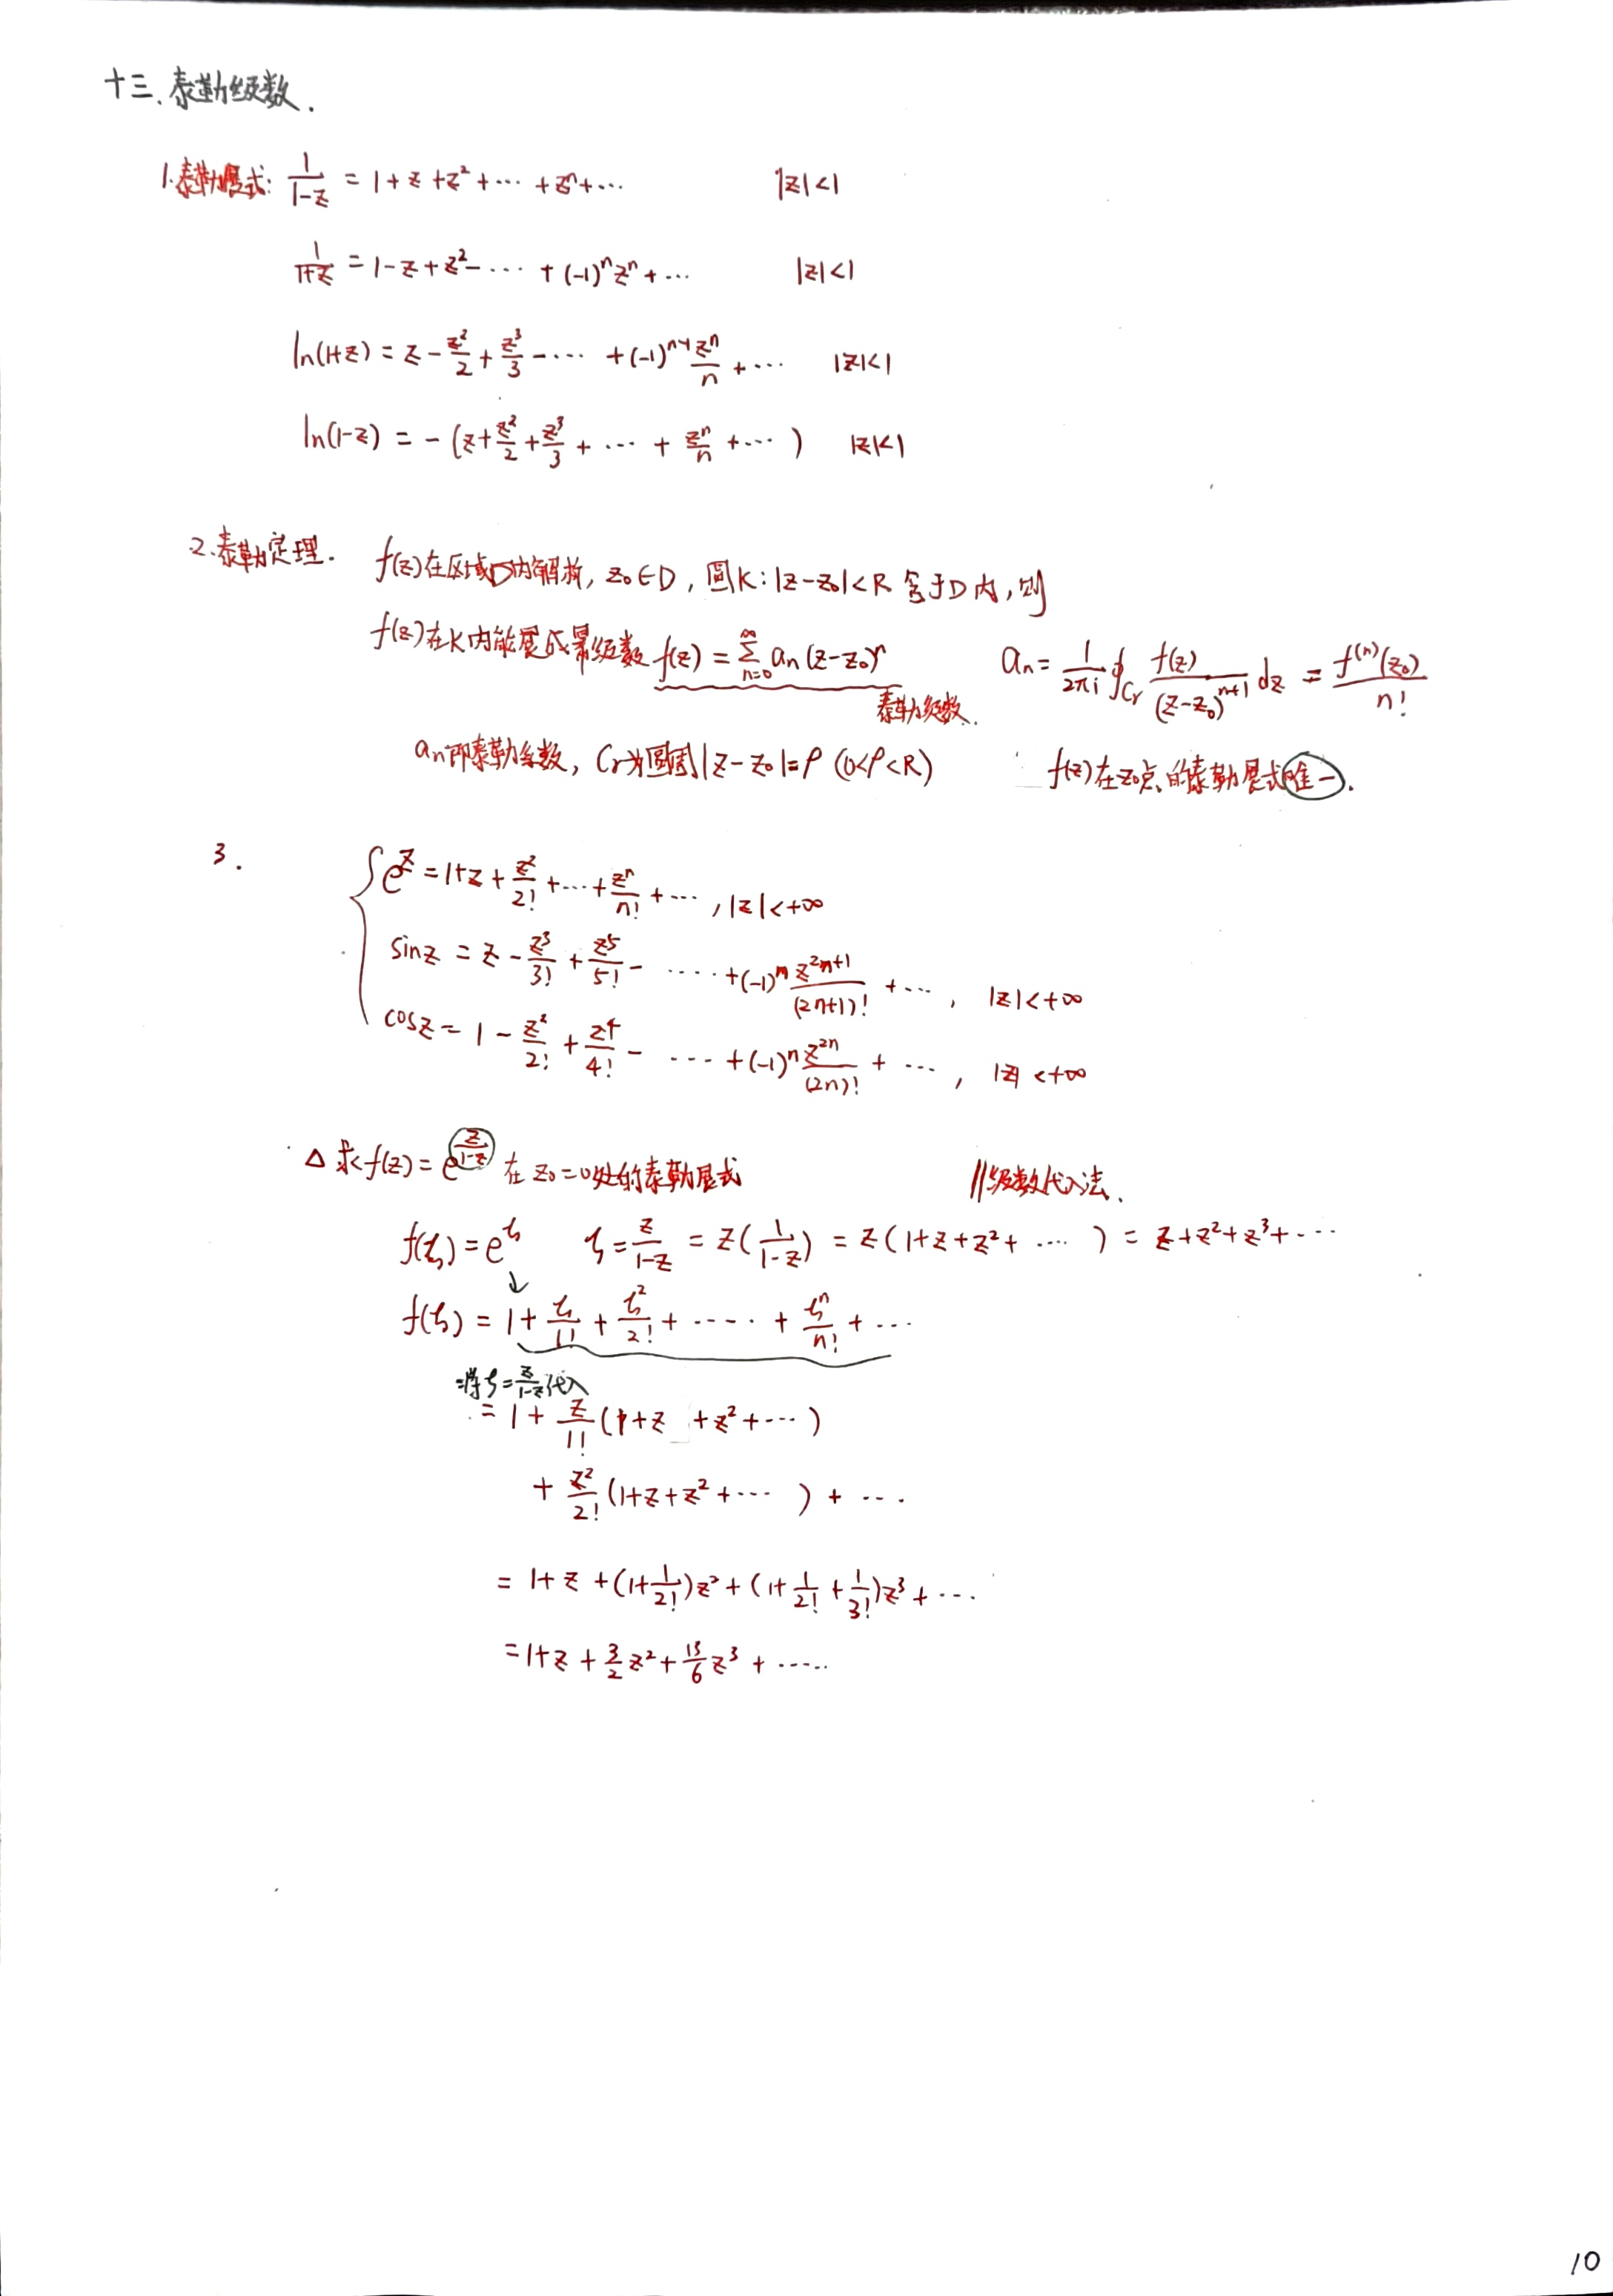 十三、泰勒级数.
1.泰勒展式: 1/(1-z) = 1+z+z²+⋯+zⁿ+⋯ |z|<1
1/(1+z) = 1-z+z²-⋯+(-1)ⁿzⁿ+⋯ |z|<1
ln(1+z) = z - z²/2 + z³/3 - ⋯ + (-1)ⁿ⁻¹ zⁿ/n + ⋯ |z|<1
ln(1-z) = -(z + z²/2 + z³/3 + ⋯ + zⁿ/n + ⋯) |z|<1
2.泰勒定理. f(z)在区域D内解析, z₀∈D, 圆K: |z-z₀|<R 含于D内, 则
f(z)在K内能展成幂级数 f(z) = ∑_{n=0}^{∞} aₙ(z-z₀)ⁿ aₙ = 1/(2πi) ∮_{Cr} f(z)/(z-z₀)ⁿ⁺¹ dz = f⁽ⁿ⁾(z₀)/n!
泰勒级数.
aₙ即泰勒系数, Cr为圆周|z-z₀|=ρ (0<ρ<R) f(z)在z₀点的泰勒展式唯一.
3.
e^z = 1+z+z²/2!+⋯+zⁿ/n!+⋯, |z|<+∞
sinz = z - z³/3! + z⁵/5! - ⋯ + (-1)ⁿ z²ⁿ⁺¹/(2n+1)! + ⋯, |z|<+∞
cosz = 1 - z²/2! + z⁴/4! - ⋯ + (-1)ⁿ z²ⁿ/(2n)! + ⋯, |z|<+∞
△ 求f(z) = e^{z/(1-z)} 在z₀=0处的泰勒展式 //级数代入法.
f(ζ) = e^ζ ζ = z/(1-z) = z(1/(1-z)) = z(1+z+z²+⋯) = z+z²+z³+⋯
↓
f(ζ) = 1 + ζ/1! + ζ²/2! + ⋯ + ζⁿ/n! + ⋯
=将ζ=z/(1-z)代入
= 1 + z/1!(1+z+z²+⋯)
+ z²/2!(1+z+z²+⋯) + ⋯
= 1+z+(1+1/2!)z²+(1+1/2!+1/3!)z³+⋯
= 1+z+3/2 z²+13/6 z³+⋯
10